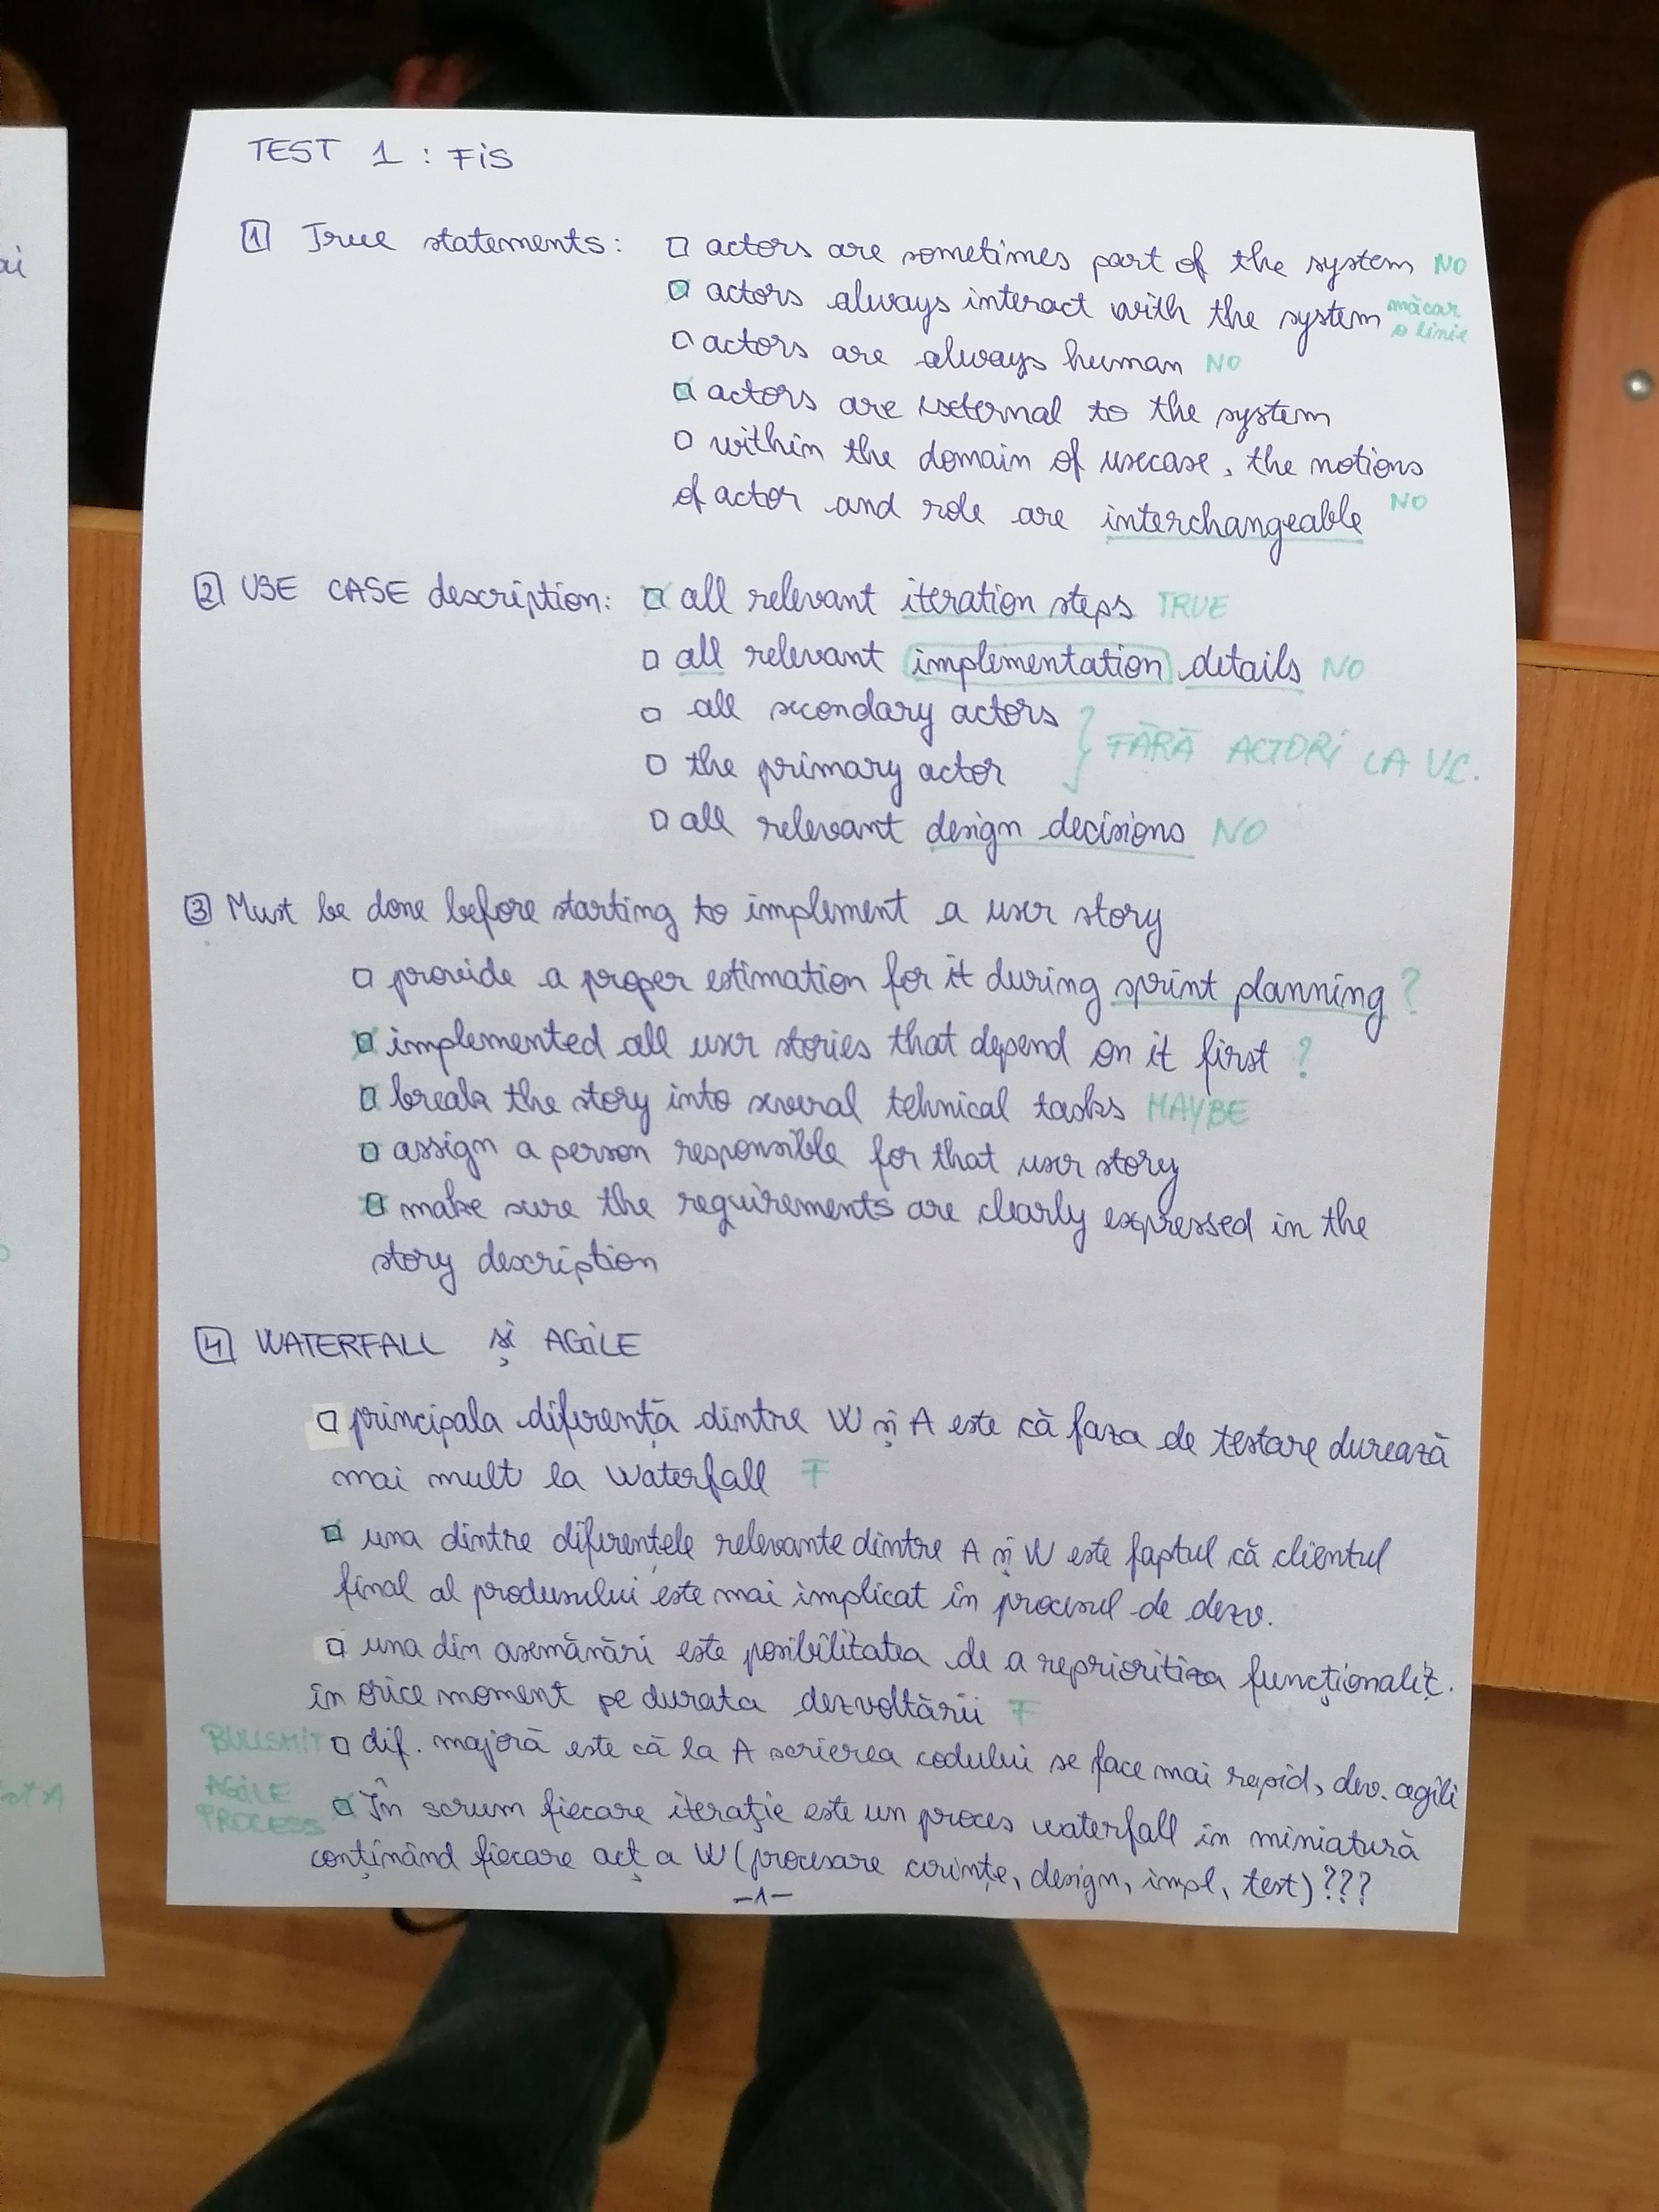 TEST 1 : FiS
1 True statements: □ actors are sometimes part of the system NO
□ actors always interact with the system măcar o linie
□ actors are always human NO
□ actors are external to the system
□ within the domain of usecase, the notions
of actor and role are interchangeable NO
2 USE CASE description: □ all relevant iteration steps TRUE
□ all relevant implementation details NO
□ all secondary actors
□ the primary actor } FĂRĂ ACTORI LA UC.
□ all relevant design decisions NO
3 Must be done before starting to implement a user story
□ provide a proper estimation for it during sprint planning ?
□ implemented all user stories that depend on it first ?
□ break the story into several tehnical tasks MAYBE
□ assign a person responsible for that user story
□ make sure the requirements are clearly expressed in the
story description
4 WATERFALL și AGiLE
□ principala diferență dintre W și A este că faza de testare durează
mai mult la Waterfall F
□ una dintre diferențele relevante dintre A și W este faptul că clientul
final al produsului este mai implicat în procesul de dezv.
□ una din asemănări este posibilitatea de a reprioritiza funcționalit.
în orice moment pe durata dezvoltării F
BULLSHiT □ dif. majoră este că la A scrierea codului se face mai rapid, dev. agili
AGiLE PROCESS □ În scrum fiecare iterație este un proces waterfall în miniatură
conținând fiecare act a W (procesare cerințe, design, impl, test) ???
-1-
ai